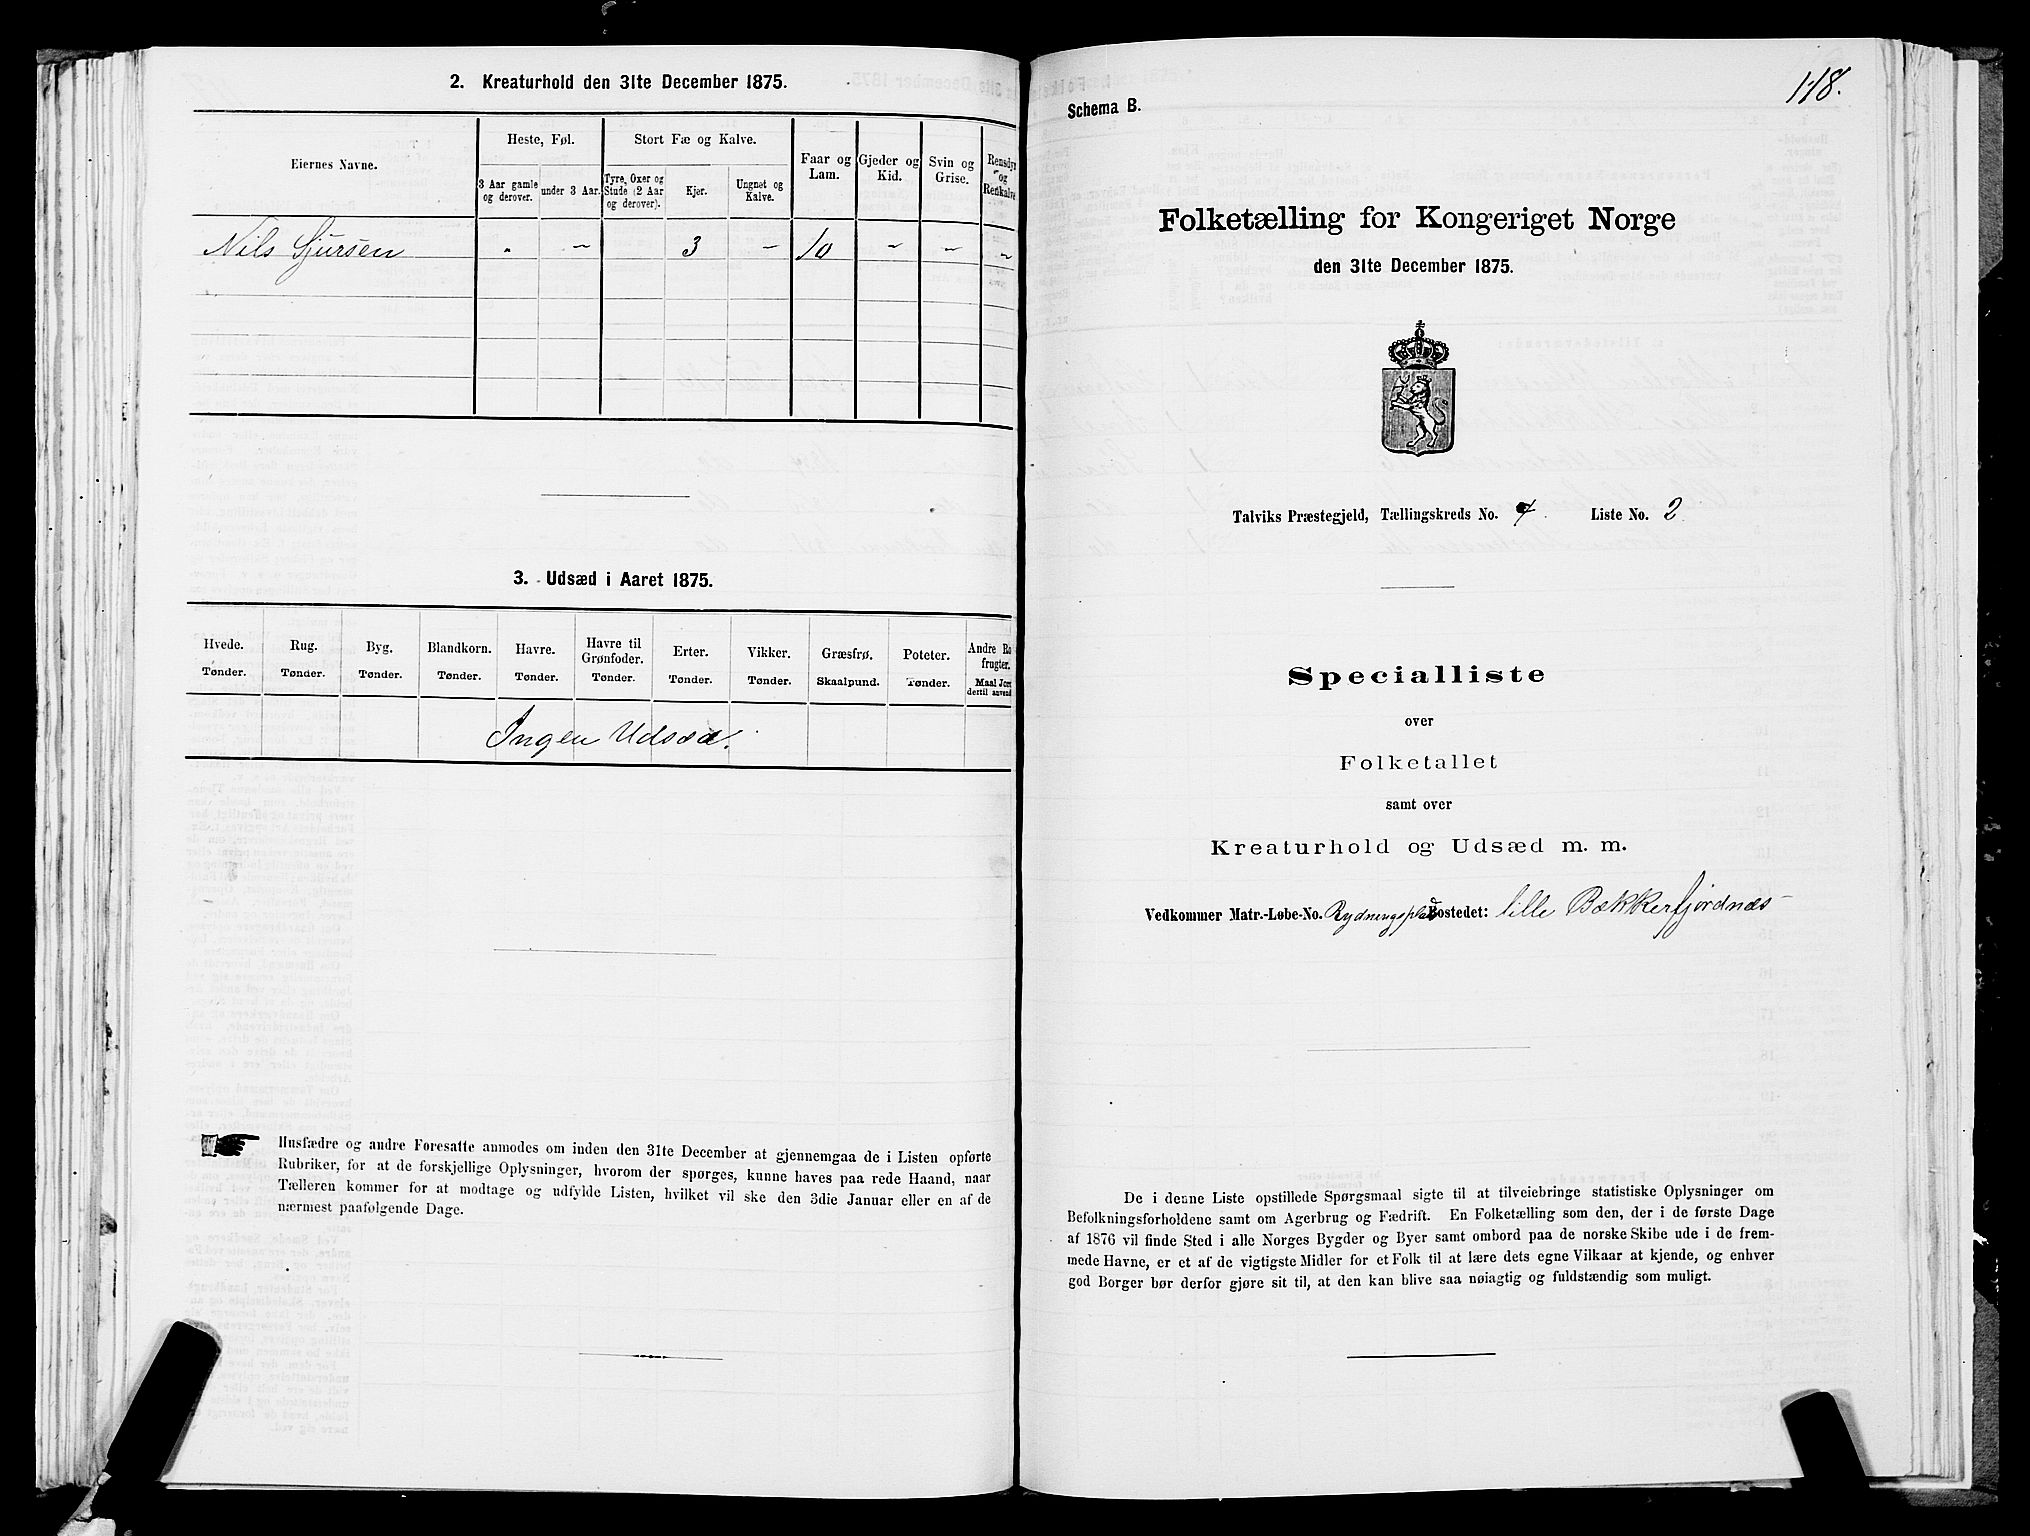 2. Kreaturhold den 31te December 1875.
Eiernes Navne.
Heste, Føl.
Stort Fæ og Kalve.
Faar og Lam.
Gjeder og Kid.
Svin og Grise.
Rensdyr og Renkalve
3 Aar gamle og derover.
under 3 Aar.
Tyre, Oxer og Stude (2 Aar og derover).
Kjør.
Ungnøt og Kalve.
Nils Sjursen " - 3 - 10 - - -
3. Udsæd i Aaret 1875.
Hvede. Tønder.
Rug. Tønder.
Byg. Tønder.
Blandkorn. Tønder.
Havre. Tønder.
Havre til Grønfoder. Tønder.
Erter. Tønder.
Vikker. Tønder.
Græsfrø. Skaalpund.
Poteter. Tønder.
Andre Ro frugter. Maal Jord dertil anvend
Ingen Udsæd.
Husfædre og andre Foresatte anmodes om inden den 31te December at gjennemgaa de i Listen opførte
Rubriker, for at de forskjellige Oplysninger, hvorom der spørges, kunne haves paa rede Haand, naar
Tælleren kommer for at modtage og udfylde Listen, hvilket vil ske den 3die Januar eller en af de
nærmest paafølgende Dage.
118.
Schema B.
Folketælling for Kongeriget Norge
den 31te December 1875.
Talviks Præstegjeld, Tællingskreds No. 4. Liste No. 2
Specialliste
over
Folketallet
samt over
Kreaturhold og Udsæd m. m.
Vedkommer Matr.-Løbe-No. Rydningsplads Bostedet: lille Bækkerfjordnæs
De i denne Liste opstillede Spørgsmaal sigte til at tilveiebringe statistiske Oplysninger om
Befolkningsforholdene samt om Agerbrug og Fædrift. En Folketælling som den, der i de første Dage
af 1876 vil finde Sted i alle Norges Bygder og Byer samt ombord paa de norske Skibe ude i de frem-
mede Havne, er et af de vigtigste Midler for et Folk til at lære dets egne Vilkaar at kjende, og enhver
god Borger bør derfor gjøre sit til, at den kan blive saa nøiagtig og fuldstændig som muligt.